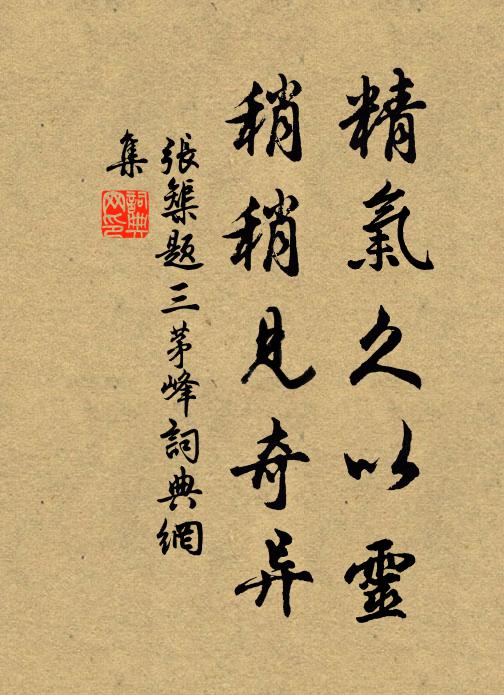 精氣久以靈
稍稍見奇异
張榘題三茅峰詞典網
集
詞典
网印